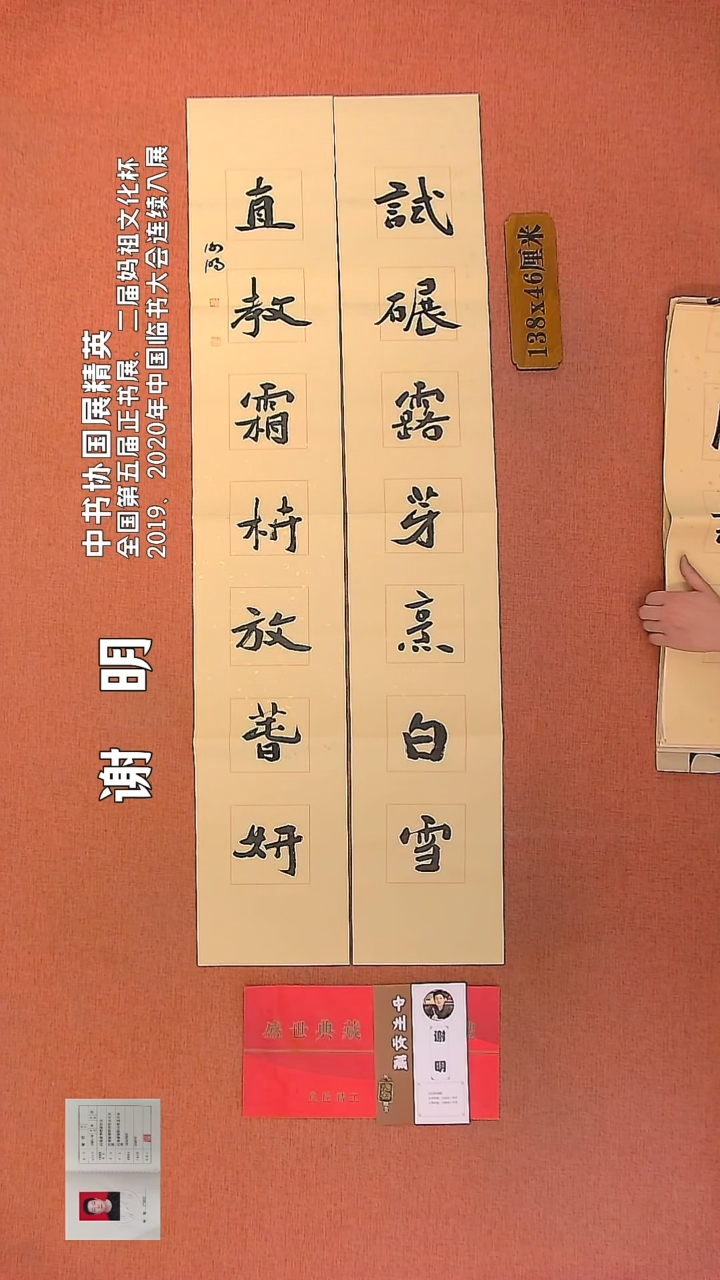 試碾露芽烹白雪
直教霜枿放萅妍
谢明
138x46厘米
中书协国展精英
全国第五届正书展、二届妈祖文化杯
2019、2020年中国临书大会连续入展
谢 明
盛世典藏
中州收藏
谢明